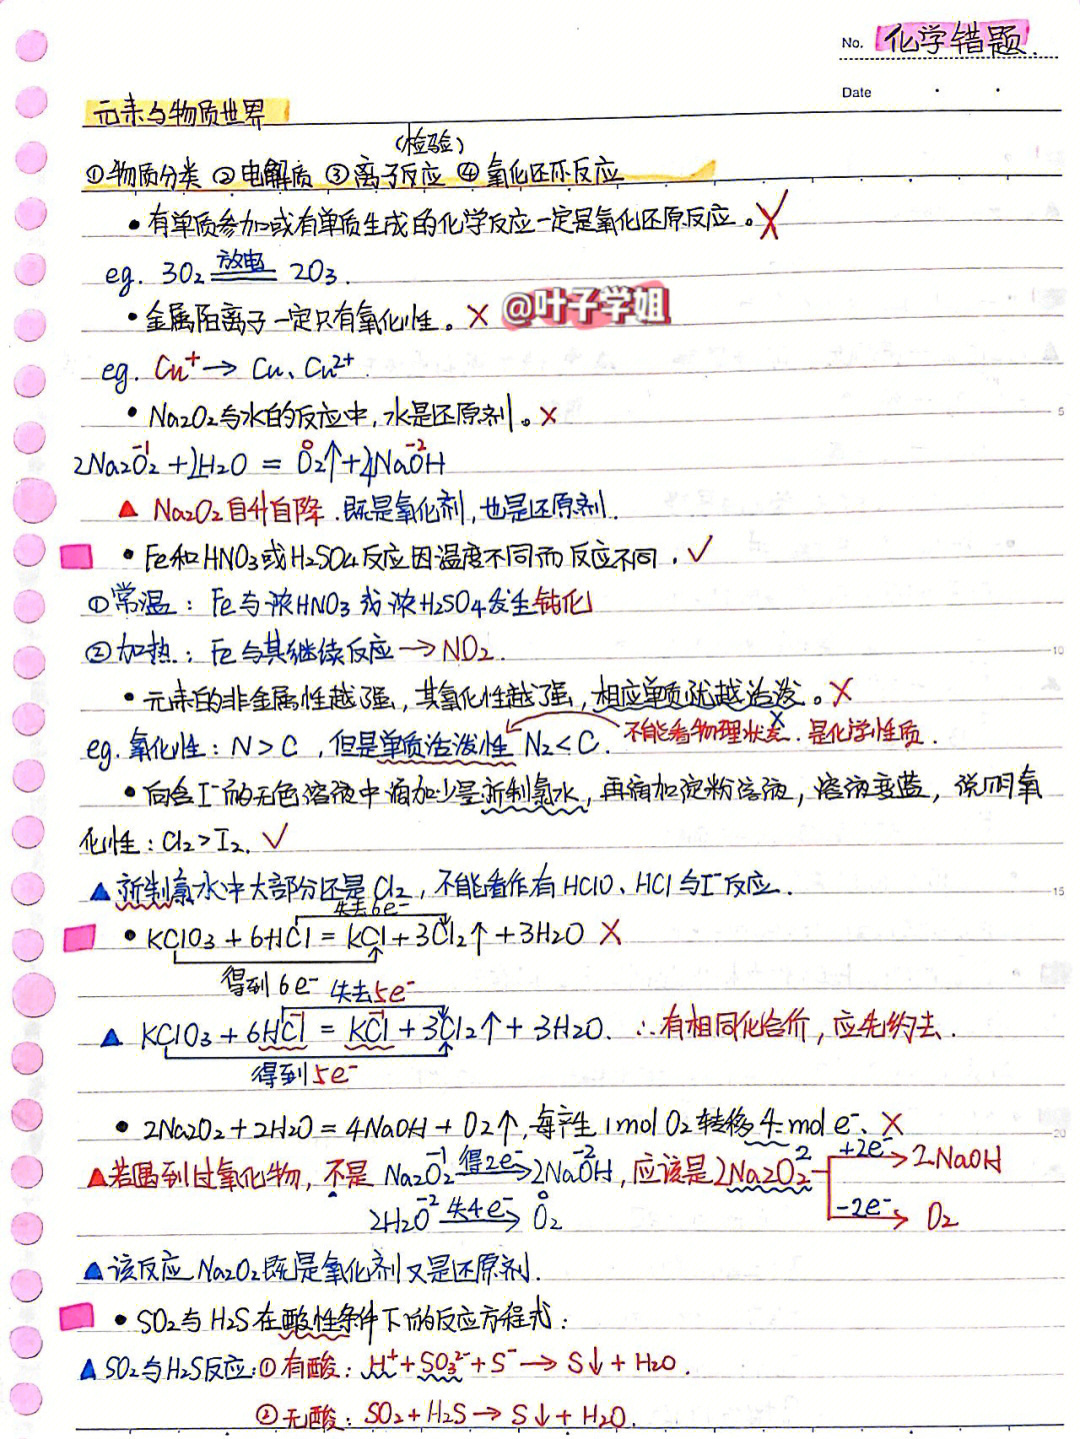 No. 化学错题.
Date
元素与物质世界
(检验)
①物质分类 ②电解质 ③离子反应 ④氧化还原反应
•有单质参加或有单质生成的化学反应一定是氧化还原反应。X
eg. 3O₂ 放电 2O₃.
•金属阳离子一定只有氧化性。X @叶子学姐
eg. Cu⁺→ Cu、Cu²⁺.
•Na₂O₂与水的反应中,水是还原剂。X
-1 0 -2
2Na₂O₂+2H₂O = O₂↑+4NaOH
▲ Na₂O₂自升自降.既是氧化剂,也是还原剂.
•Fe和HNO₃或H₂SO₄反应因温度不同而反应不同.✓
①常温:Fe与浓HNO₃或浓H₂SO₄发生钝化
②加热:Fe与其继续反应→NO₂.
•元素的非金属性越强,其氧化性越强,相应单质就越活泼。X
eg.氧化性:N>C,但是单质活泼性 N₂<C. 不能看物理状态.是化学性质.
•向含I⁻的无色溶液中滴加少量新制氯水,再滴加淀粉溶液,溶液变蓝,说明氧
化性:Cl₂>I₂.✓
▲新制氯水中大部分还是Cl₂,不能看作有HClO、HCl与I⁻反应.
失去6e⁻
•KClO₃+6HCl=KCl+3Cl₂↑+3H₂O X
得到6e⁻ 失去5e⁻
▲ KClO₃+6HCl=KCl+3Cl₂↑+3H₂O. ∴有相同化合价,应先约去.
得到5e⁻
•2Na₂O₂+2H₂O=4NaOH+O₂↑,每产生1mol O₂转移4mol e⁻. X
▲若遇到过氧化物,不是 Na₂O₂ 得2e⁻ 2NaOH,应该是2Na₂O₂ +2e⁻ 2NaOH
2H₂O 失4e⁻ O₂ -2e⁻ O₂
▲该反应Na₂O₂既是氧化剂又是还原剂.
•SO₂与H₂S在酸性条件下的反应方程式:
▲SO₂与H₂S反应:①有酸:H⁺+SO₃²⁻+S⁻→S↓+H₂O.
②无酸:SO₂+H₂S→S↓+H₂O.
5
10
15
20